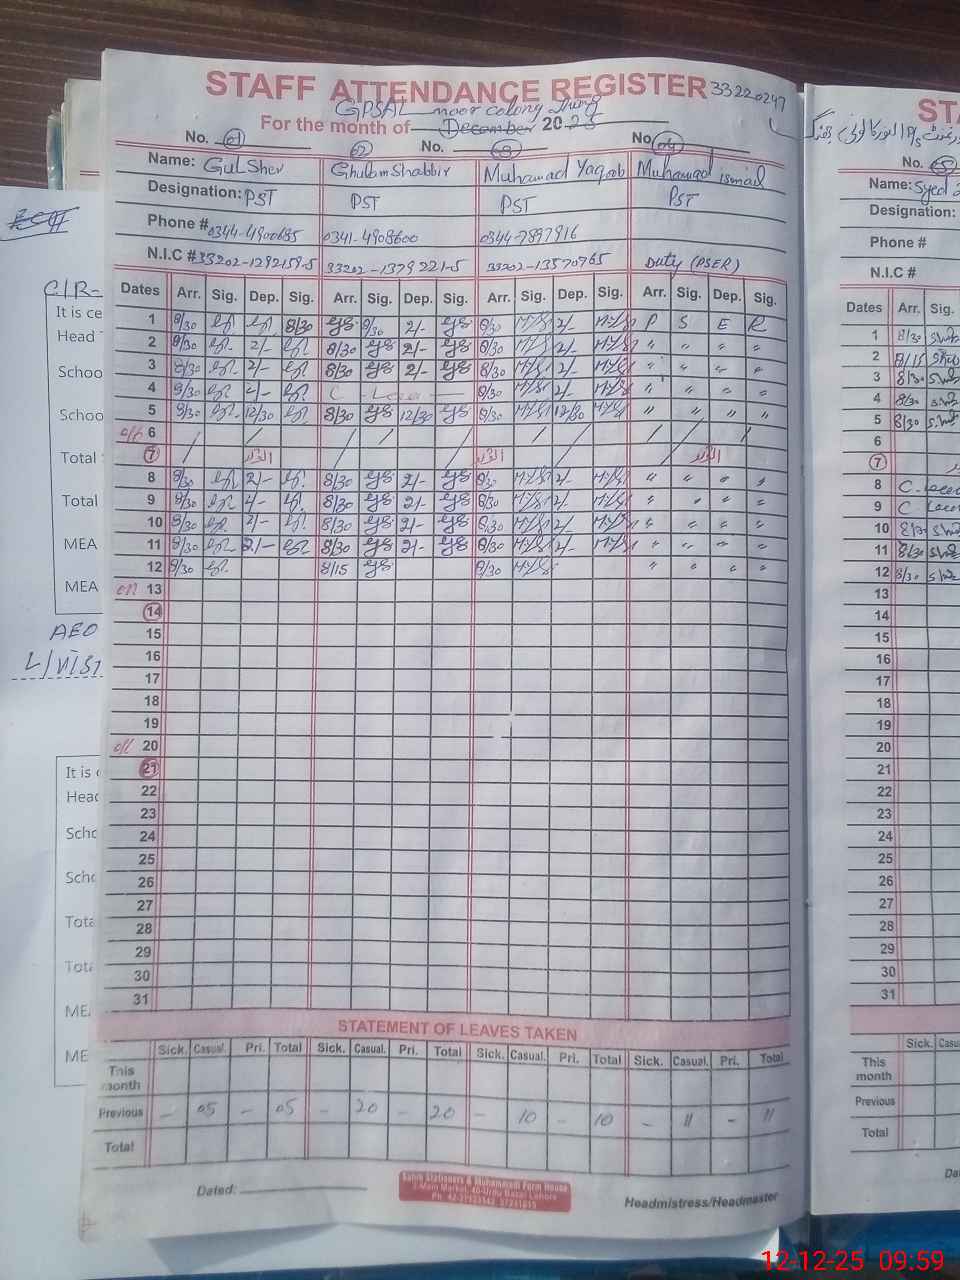 STAFF ATTENDANCE REGISTER 33220247
GPSAL noor colony Jhang
For the month of December 2025
No. 01 02 No. 03 No. 04
Name: Gul Sher Ghulam Shabbir Muhamad Yaqoob Muhamad ismail
Designation: PST PST PST PST
Phone # 0344-4900685 0341-4908600 0344-7897916
N.I.C # 33202-1292159-5 33202-1379221-5 33202-13570765 Duty (PSER)
Dates Arr. Sig. Dep. Sig. Arr. Sig. Dep. Sig. Arr. Sig. Dep. Sig. Arr. Sig. Dep. Sig.
1 8/30 8/30 8/30 2/- 8/30 2/- P S E R
2 8/30 2/- 8/30 2/- 8/30 2/- " " " "
3 8/30 2/- 8/30 2/- 8/30 2/- " " " "
4 8/30 2/- C - Leave 8/30 2/- " " " "
5 8/30 12/30 8/30 12/30 8/30 12/30 " " " "
off 6
7 اتوار اتوار اتوار
8 8/30 2/- 8/30 2/- 8/30 2/- " " " "
9 8/30 2/- 8/30 2/- 8/30 2/- " " " "
10 8/30 2/- 8/30 2/- 8/30 2/- " " " "
11 8/30 2/- 8/30 2/- 8/30 2/- " " " "
12 8/30 8/15 8/30 " " " "
off 13
14
15
16
17
18
19
off 20
21
22
23
24
25
26
27
28
29
30
31
STATEMENT OF LEAVES TAKEN
Sick. Casual. Pri. Total Sick. Casual. Pri. Total Sick. Casual. Pri. Total Sick. Casual. Pri. Total
This month
Previous - 05 - 05 - 20 - 20 - 10 - 10 - 11 - 11
Total
Dated:
Sahib Stationers & Muhammadi Form House
2-Main Market, 40-Urdu Bazar Lahore
Headmistress/Headmaster
STA
No. 05
Name: Syed
Designation:
Phone #
N.I.C #
Dates Arr. Sig.
1 8/30
2 8/15
3 8/30
4 8/30
5 8/30
6
7
8 C. Leave
9 C. Leave
10
11 8/30
12 8/30
13
14
15
16
17
18
19
20
21
22
23
24
25
26
27
28
29
30
31
Sick. Casu
This month
Previous
Total
Da
It is ce
Head T
Schoo
Schoo
Total
Total
MEA
MEA
AEO
It is c
Head
Scho
Scho
Tota
Tota
ME
ME
12-12-25 09:59